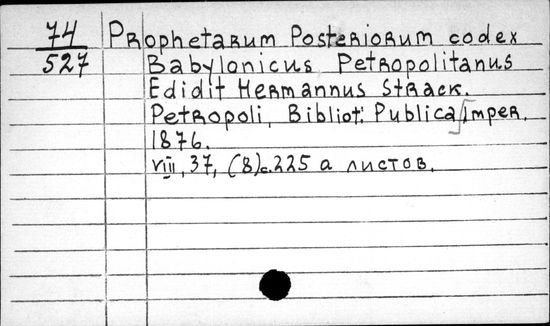 74 Prophetarum Posteriorum codex
527 Babylonicus Petropolitanus
Edidit Hermannus Strack.
Petropoli, Bibliot. Publica Imper.
1876.
VIII, 37, (8)с. 225 а листов.